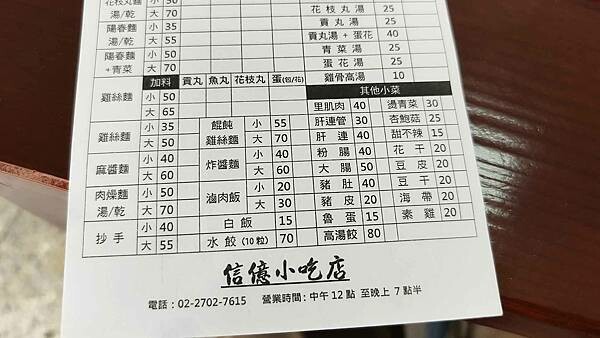 花枝丸麵 小 50 花枝丸湯 25
湯/乾 大 70 貢丸湯 25
陽春麵 小 35 貢丸湯 + 蛋花 40
湯/乾 大 55 青菜湯 25
陽春麵 小 50 蛋花湯 25
+青菜 大 70 雞骨高湯 10
加料 貢丸 魚丸 花枝丸 蛋(包/花) 其他小菜
雞絲麵 小 50
大 65
里肌肉 40 燙青菜 30
雞絲麵 小 35 餛飩 小 55 肝連管 30 杏鮑菇 25
大 50 雞絲麵 大 70 肝連 40 甜不辣 15
麻醬麵 小 40 炸醬麵 小 40 粉腸 40 花干 20
大 60 大 60 大腸 50 豆皮 20
肉燥麵 小 50 滷肉飯 小 20 豬肚 40 豆干 20
湯/乾 大 70 大 30 豬皮 20 海帶 20
抄手 小 40 白飯 15 魯蛋 15 素雞 20
大 55 水餃(10粒) 70 高湯餃 80
信億小吃店
電話：02-2702-7615 營業時間: 中午 12 點 至晚上 7 點半